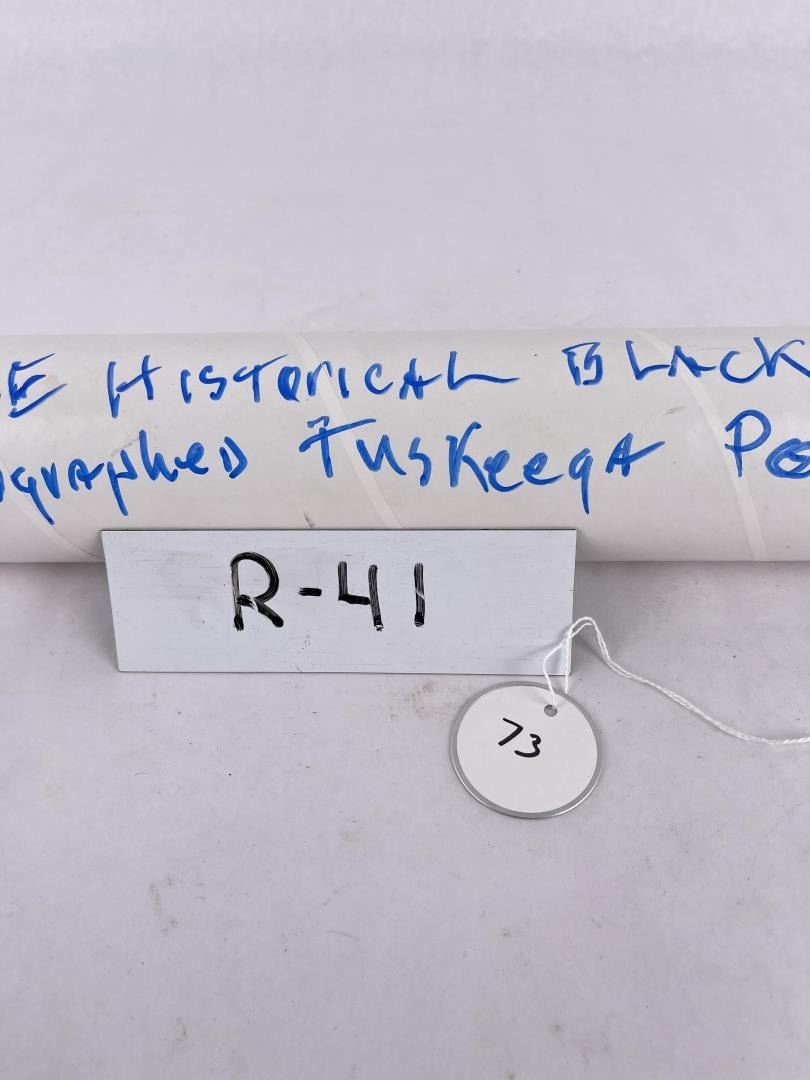 E HISTORICAL BLACK
ographed TuskeegA Po
R-41
73